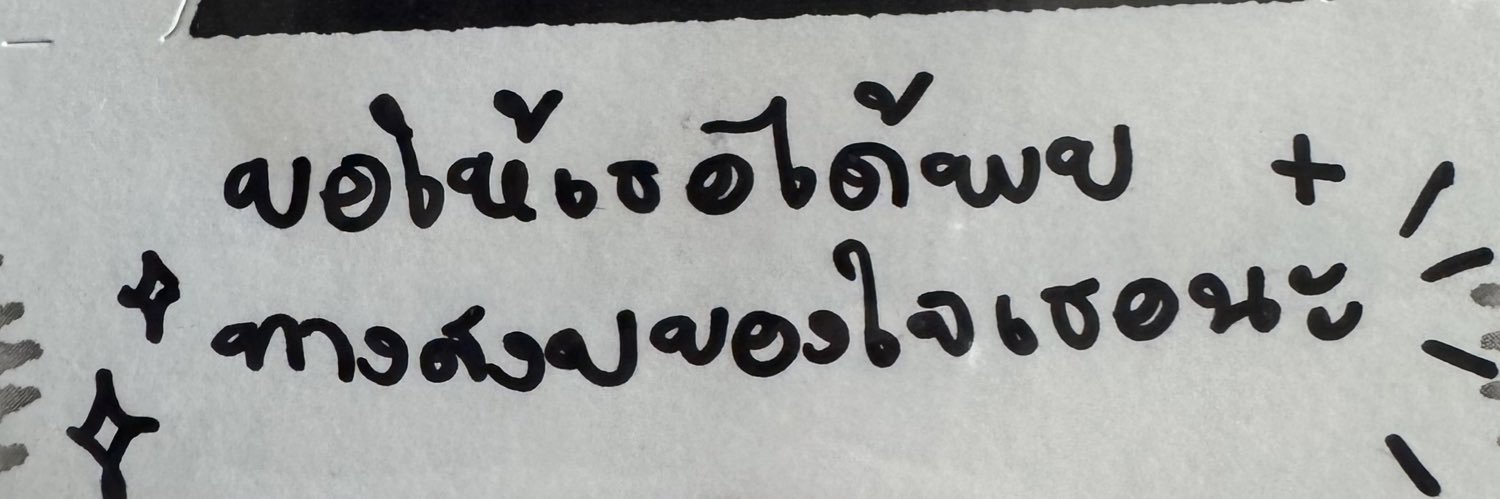 ขอให้เธอได้พบ
ทางสงบของใจเธอนะ